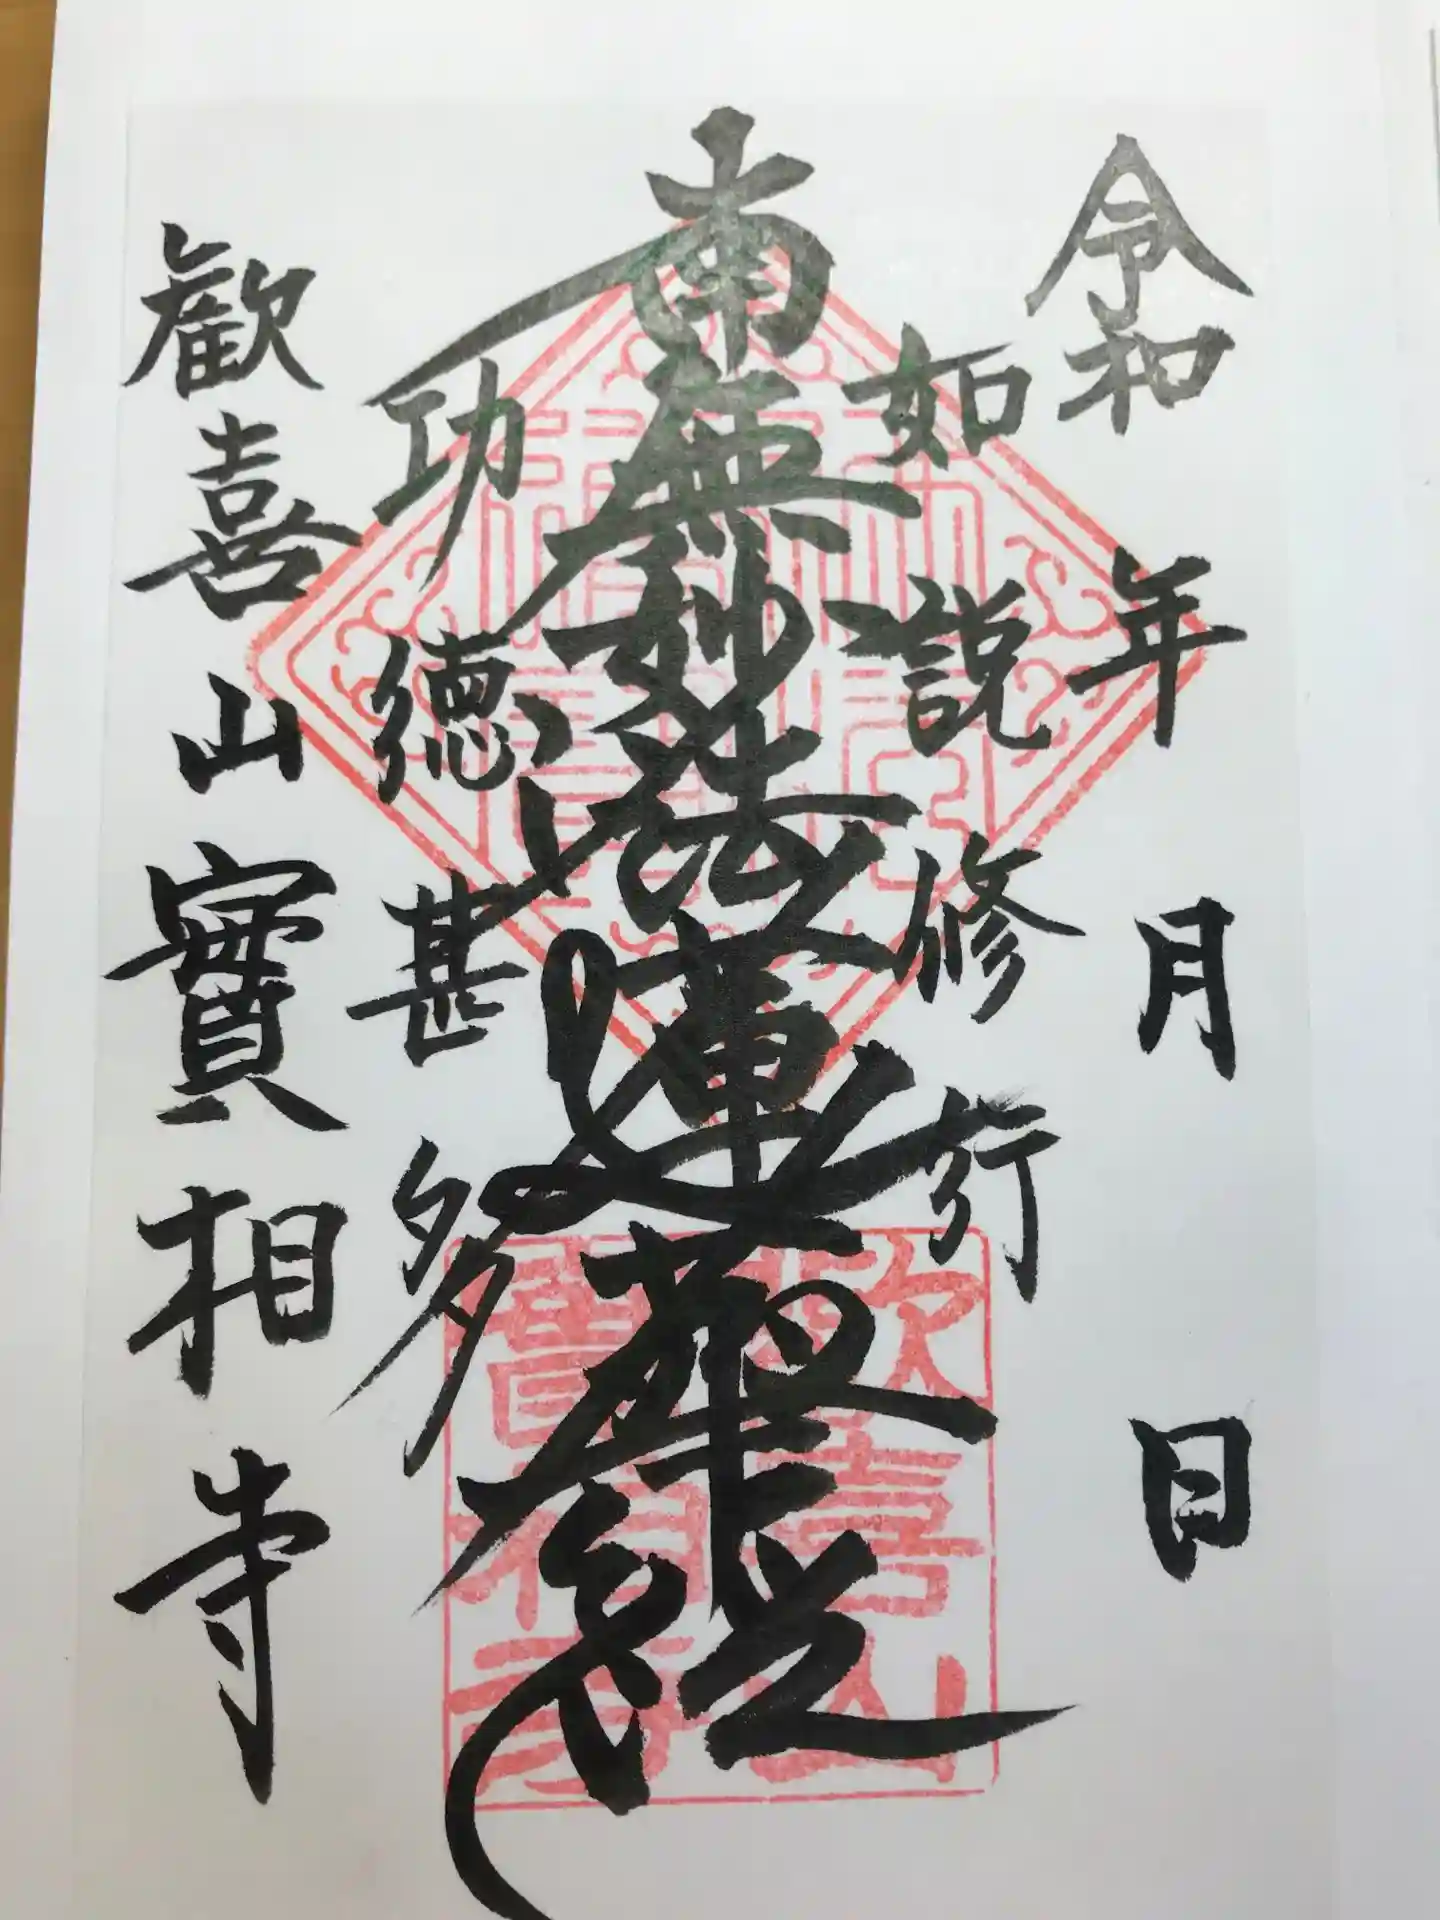 令和 年 月 日
如説修行
南無妙法蓮華経
功徳甚多
歡喜山寶相寺